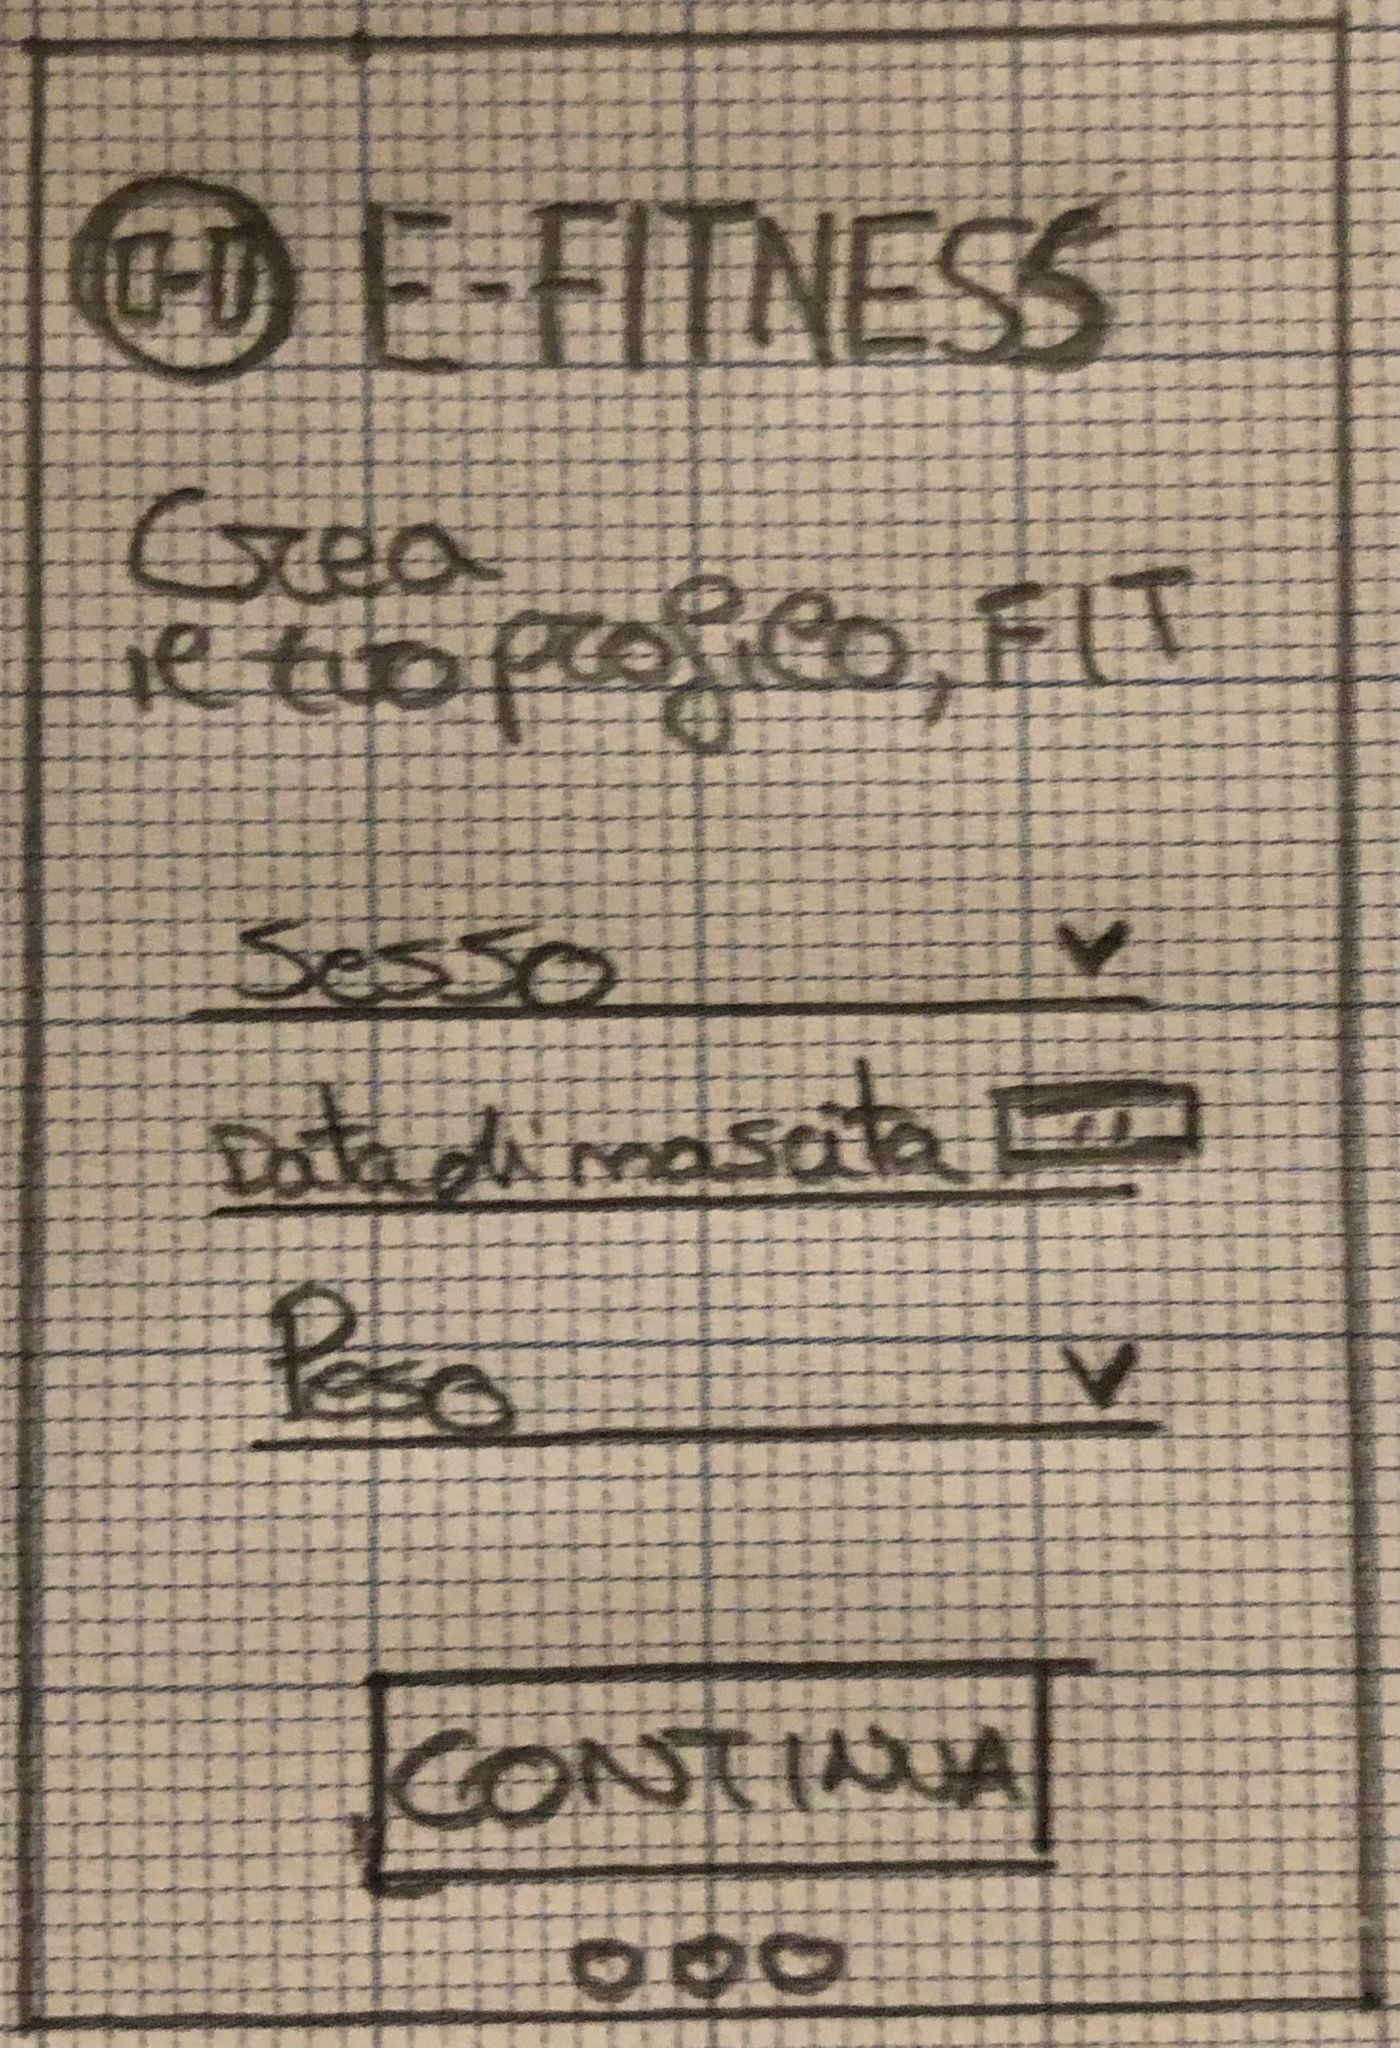 E-FITNESS
Crea
il tuo profilo, FIT
Sesso
Data di nascita
Peso
CONTINUA